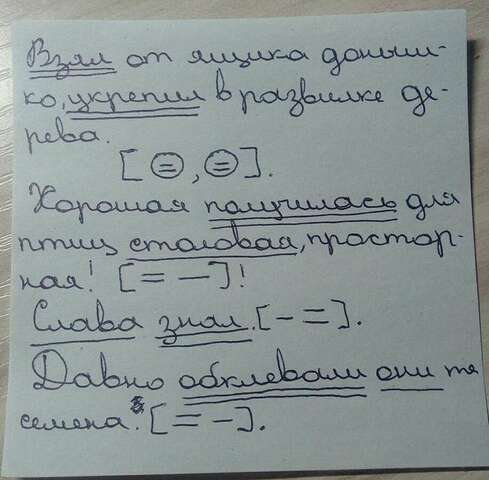 Взял от ящика доныш-
ко, укрепил в развилке де-
рева.
[⊜, ⊜].
Хорошая получилась для
птиц столовая, простор-
ная! [= –]!
Слава знал. [– =].
Давно обклевали они те
семена. [= –].